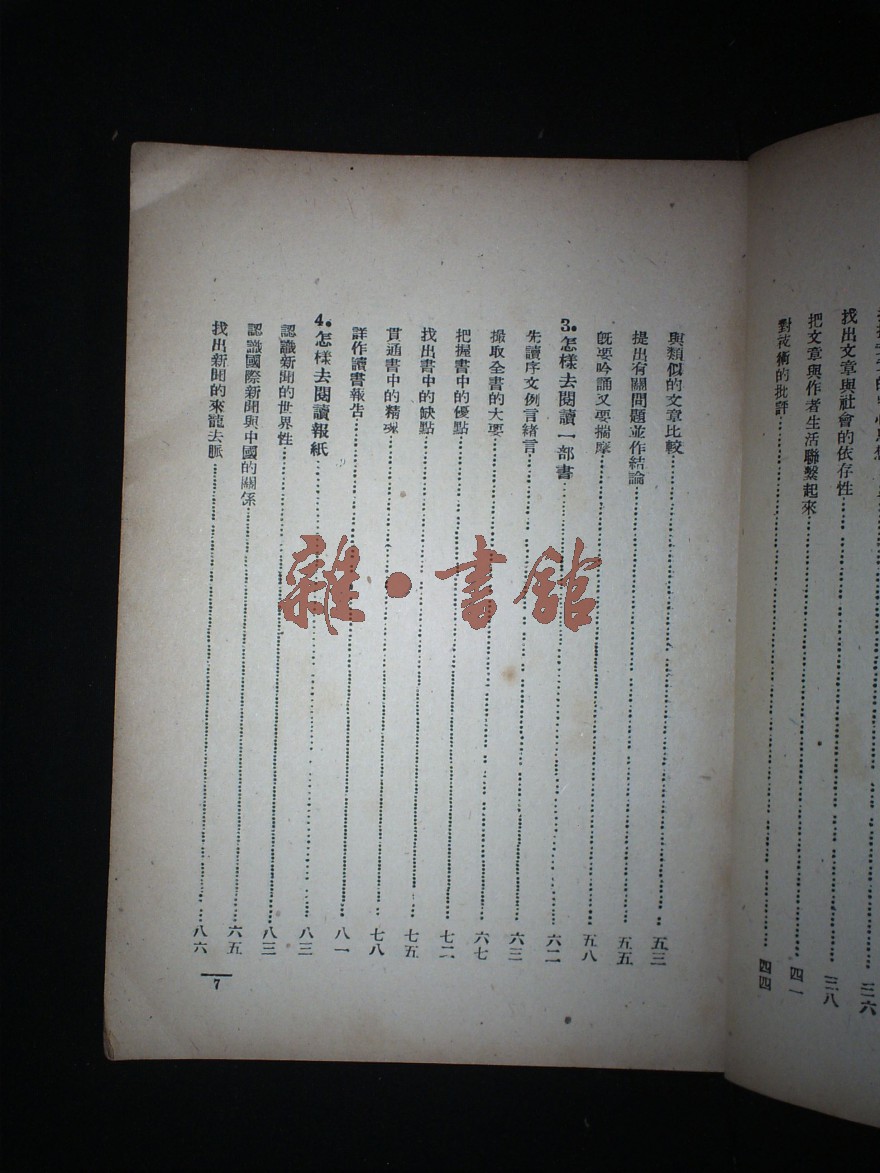 找出文章與社會的依存性……三八
把文章與作者生活聯繫起來……四一
對技術的批評……四四
與類似的文章比較……五三
提出有關問題並作結論……五五
旣要吟誦又要揣摩……五八
3.怎樣去閱讀一部書……六二
先讀序文例言緒言……六三
撮取全書的大要……六七
把握書中的優點……七二
找出書中的缺點……七五
貫通書中的精魂……七八
詳作讀書報告……八一
4.怎樣去閱讀報紙……八三
認識新聞的世界性……八三
認識國際新聞與中國的關係……六五
找出新聞的來龍去脈……八六
7
雜·書館